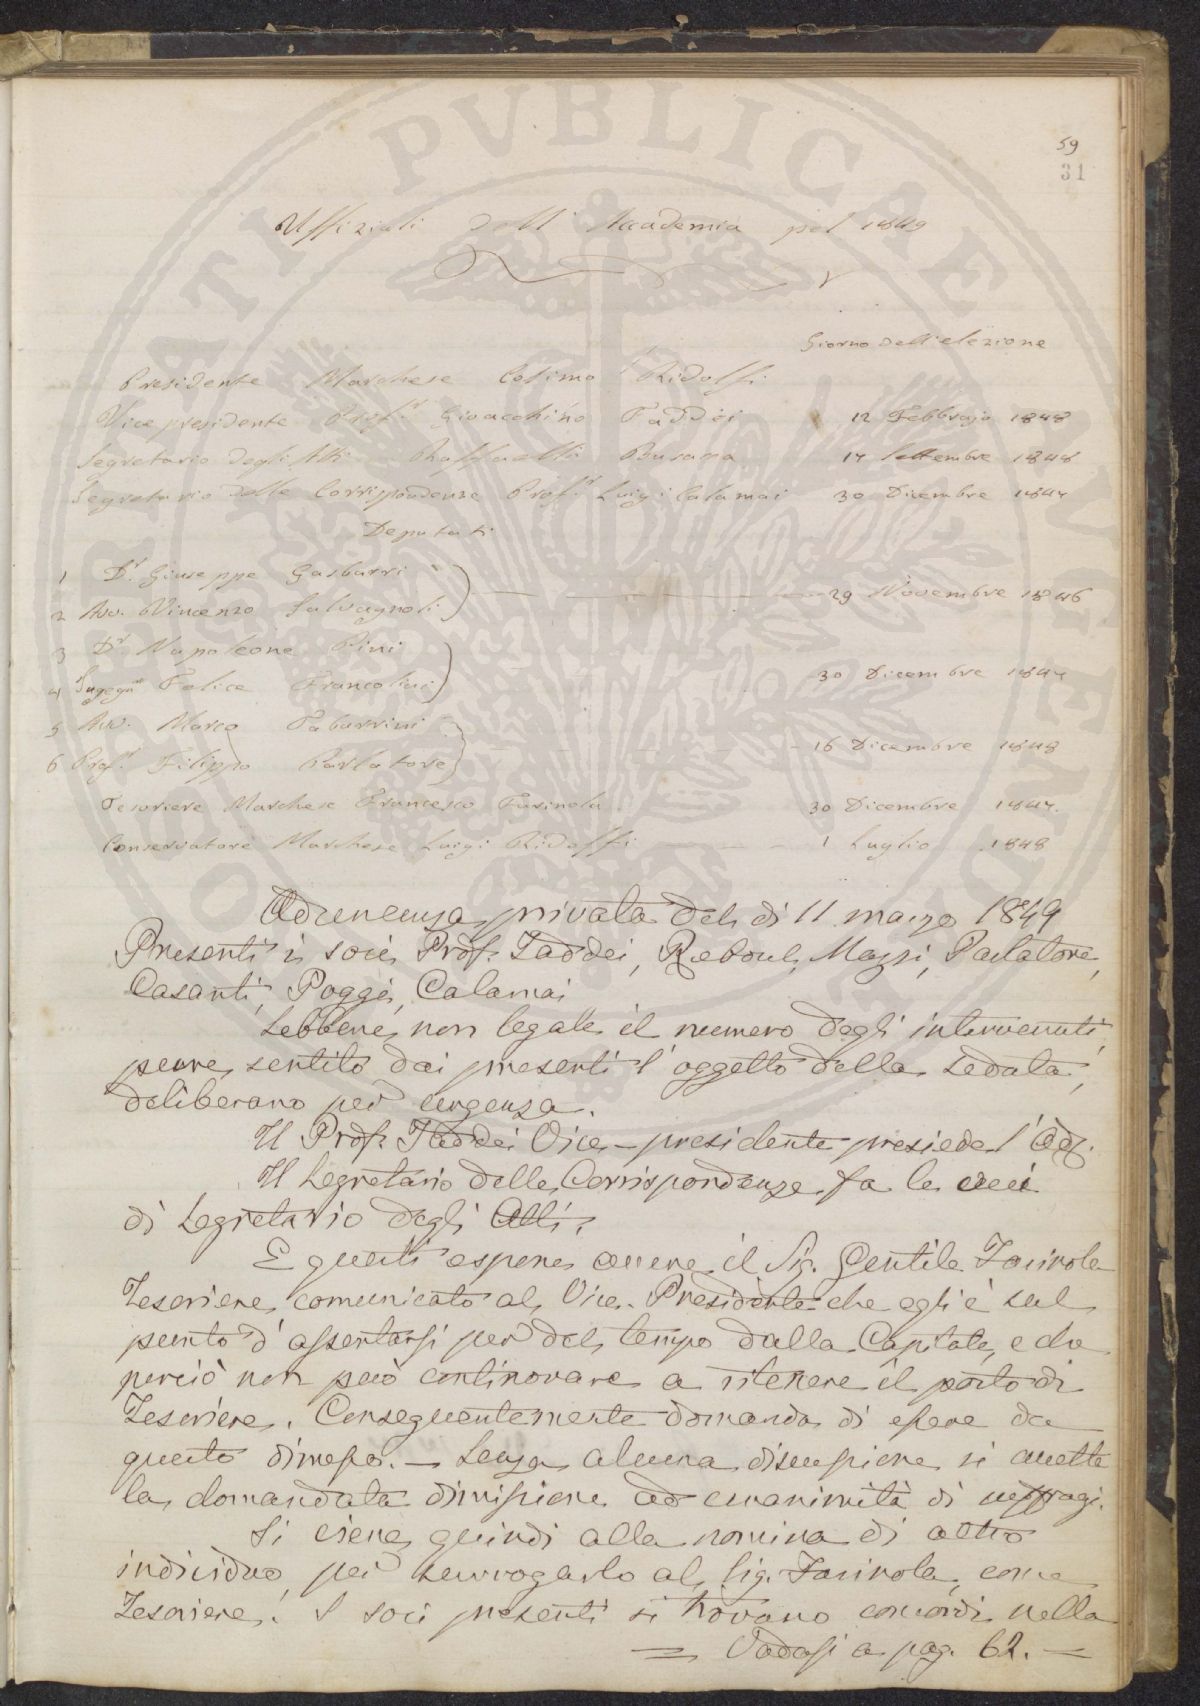 59
31
Uffiziali dell'Accademia pel 1849
Giorno dell'elezione
Presidente Marchese Cosimo Ridolfi
Vice presidente Prof.r Giovacchino Taddei 12 Febbrajo 1848
Segretario degli Atti Raffaello Busacca 17 Settembre 1848
Segretario delle Corrispondenze Prof.r Luigi Calamai 30 Dicembre 1847
Deputati
1 D.r Giuseppe Gasbarri
2 Avv. Vincenzo Salvagnoli 29 Novembre 1846
3 D.r Napoleone Pini
4 Ingegn.re Felice Francolini 30 Dicembre 1847
5 Avv. Marco Tabarrini
6 Prof.r Filippo Parlatore 16 Dicembre 1848
Tesoriere Marchese Francesco Farinola 30 Dicembre 1847.
Conservatore Marchese Luigi Ridolfi 1 Luglio 1848
Adunanza privata del dì 11 marzo 1849
Presenti i soci Prof. Taddei, Reboul, Mazzi, Parlatore,
Casanti, Poggi, Calamai
Sebbene non legale il numero degli intervenuti,
pure, sentito dai presenti l'oggetto della Seduta,
deliberano per urgenza.
Il Prof. Taddei Vice-presidente presiede l'Ad.
Il Segretario delle Corrispondenze fa le veci
di Segretario degli Atti.
E questi espone avere il Sig. Gentile Farinola
Tesoriere comunicato al Vice-Presidente che egli è sul
punto d'assentarsi per del tempo dalla Capitale, e che
perciò non può continovare a ritenere il posto di
Tesoriere. Conseguentemente domanda di essere da
questo dimesso. — Senza alcuna discussione si ammette
la domandata dimissione ad unanimità di suffragi.
Si viene quindi alla nomina di altro
individuo per surrogarlo al Sig. Farinola, come
Tesoriere. I soci presenti si trovano concordi nella
= Vadasi a pag. 62. —